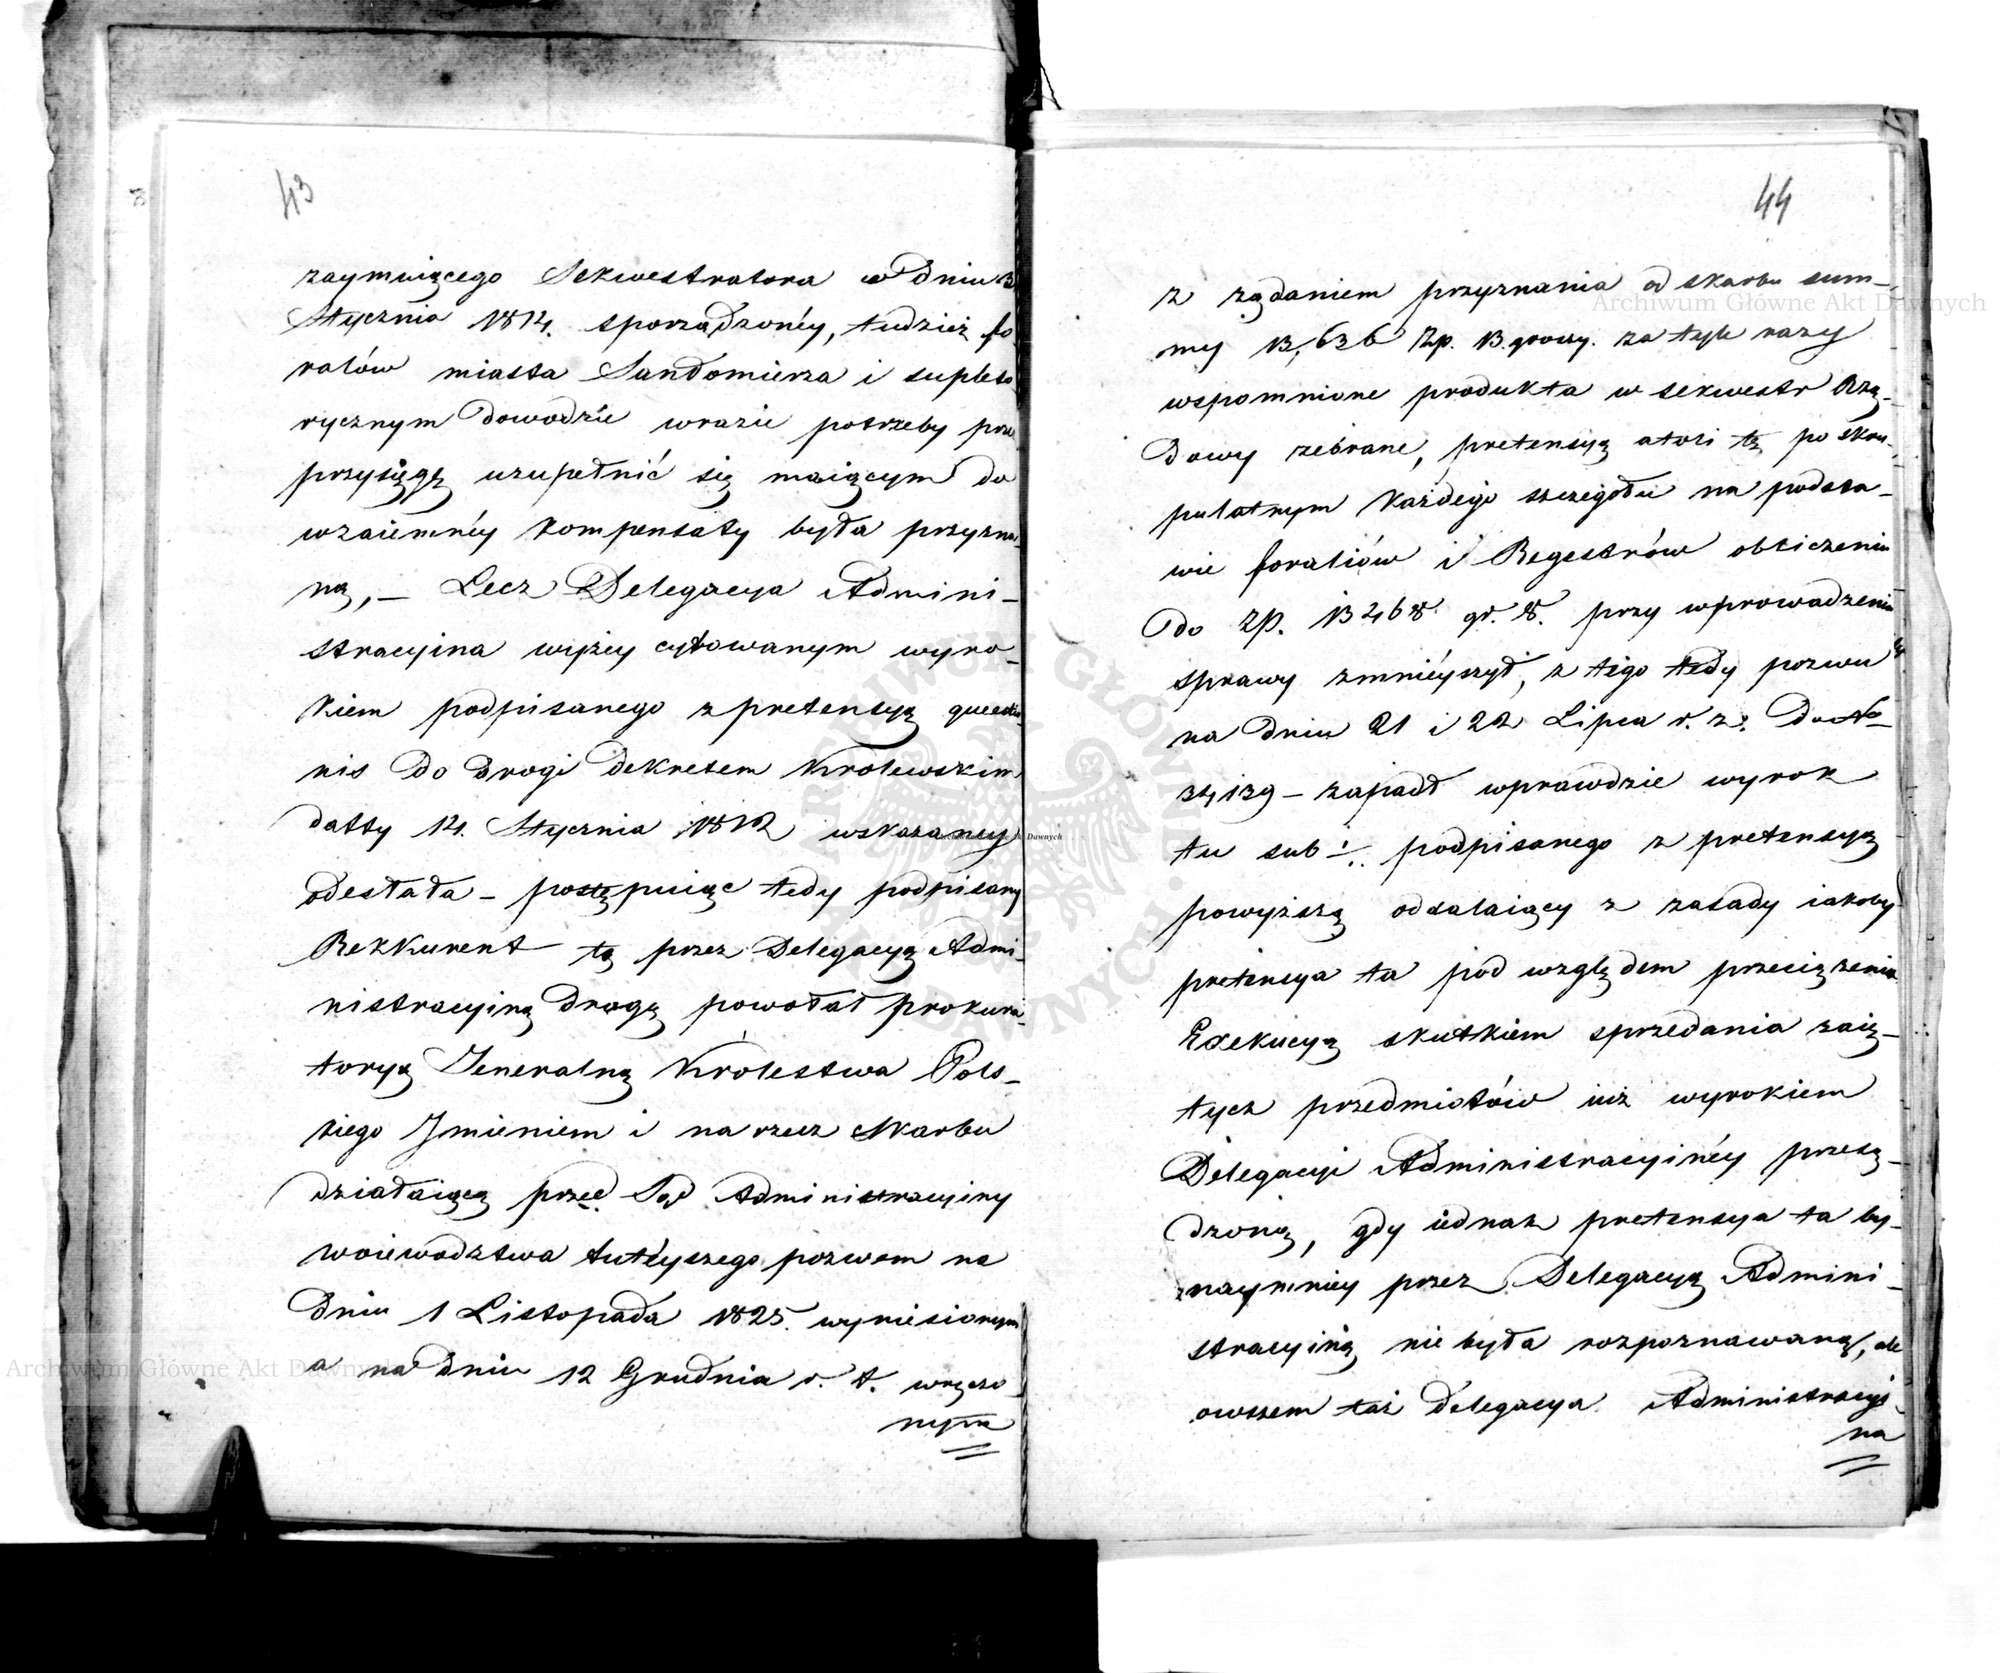 43
zaymuiącego Sekwestratora w Dniu 3
Stycznia 1814. sporządzonéy, tudzież fo
ralów miasta Sandomierza i supleto
rycznym dowodzie wrazie potrzeby prze
przysięgę uzupełnić się maiącym do
wzaiemnéy kompensaty była przyzna„
ną, – Lecz Delegacya Admini–
stracyina wyżey cytowanym wyro–
kiem podpisanego z pretensyą quaestio
nis do drogi dekretem Krolewskim
datty 14. Stycznia 1812 wskazaney
odesłała – postępuiąc tedy podpisany
Rekkurent tą przez Delegacyą Admi„
nistracyiną drogą powołał prokura„
toryą Jeneralną Królestwa Pols–
kiego Jmieniem i na rzecz Skarbu
działaiącą przed Sąd Administracyiny
woiewodztwa tuteyszego pozwem na
Dniu 1 Listopada 1825. wyniesionym
a na Dniu 12 Grudnia r. t. wręczo
nym
44
z rządaniem przyznania od skarbu sum–
my 13,636 Zp. 13. groszy. za tyle razy
wspomnione produkta w sekwestr Rzą–
dowy zebrane, pretensyą atoli tę po skru„
pulatnym każdego szczegółu na podsta–
wie foraliów i Regestrów obliczeniu
do Zp. 13468. gr. 8. przy wprowadzeniu
sprawy zmniéyszył, z tego tedy pozwu
na Dniu 21 i 22 Lipca r. z. Do No
34139 – zapadł wprawdzie wyrok
tu sub ·/. podpisanego z pretensyą
powyższą oddalaiący z zasady iakoby
pretensya ta pod względem przeciążenia
Exekucyą skutkiem sprzedania zaię–
tych przedmiotów iuż wyrokiem
Delegacyi Administracyinéy przesą–
dzoną, gdy iednak pretensya ta by–
naymniey przez Delegacyą Admini–
stracyiną nie była rozpoznawaną, ale
owszem taż Delegacya Administracyi„
na
Archiwum Główne Akt Dawnych
Archiwum Główne Akt Dawnych